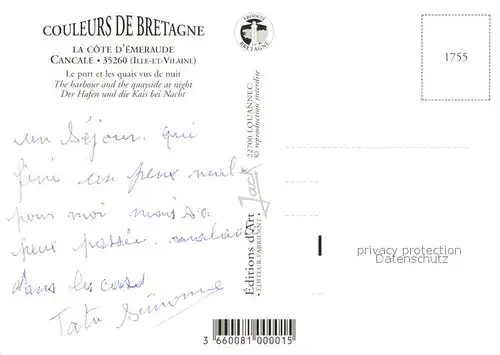 COULEURS DE BRETAGNE
LA CÔTE D'ÉMERAUDE
CANCALE • 35260 (ILLE-ET-VILAINE)
Le port et les quais vus de nuit
The harbour and the quayside at night
Der Hafen und die Kais bei Nacht
PRODUIT EN BRETAGNE
1755
un séjour qui
fini un peux mal
pour moi mais sa
peux passée
dans les cas
Tata Simonne
Editions d'Art Jack
ÉDITEUR-FABRICANT
22700 LOUANNEC
© reproduction interdite
privacy protection
Datenschutz
3 660081 000015